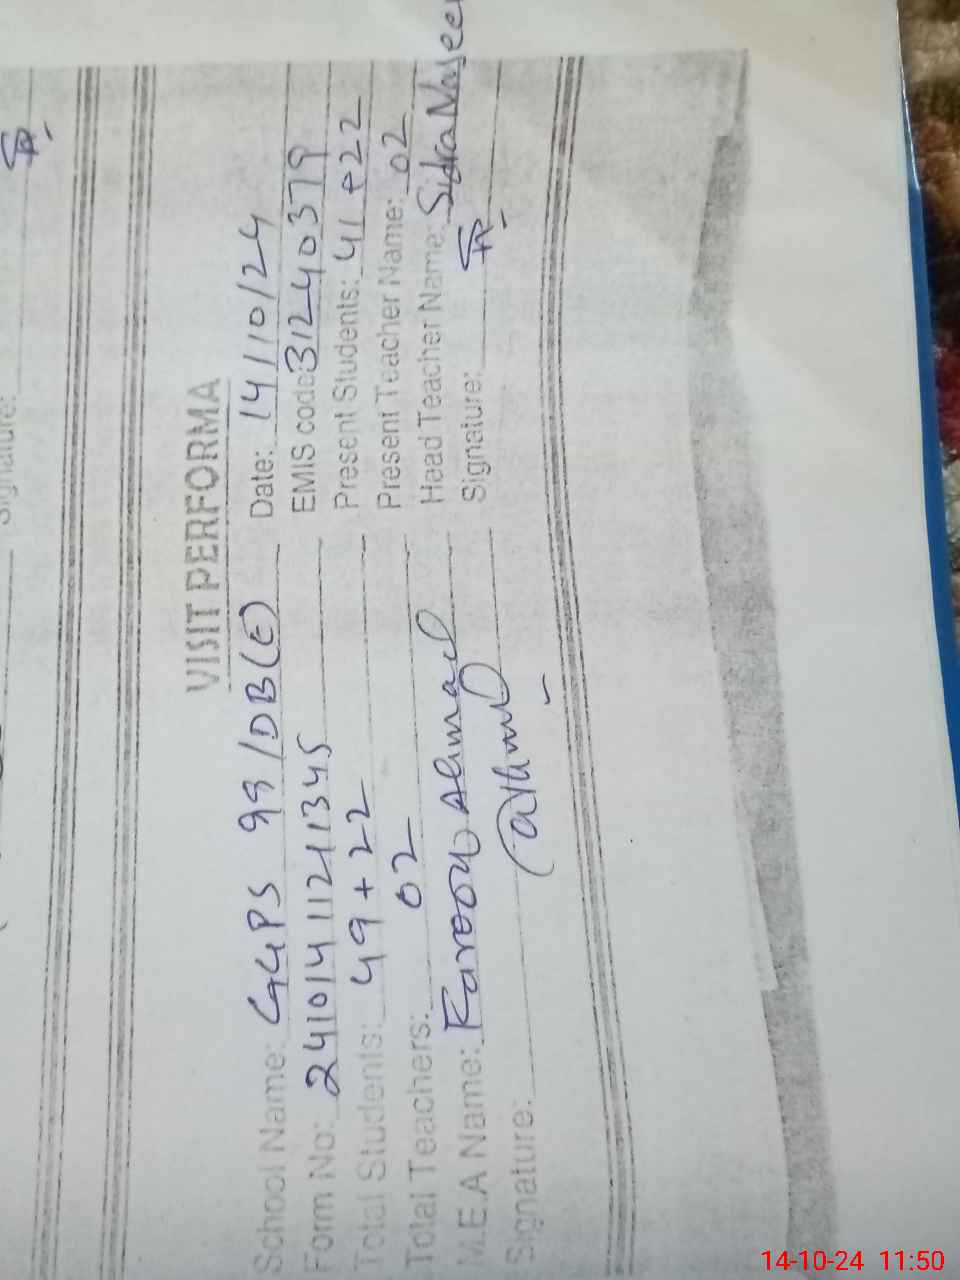 Signature:
VISIT PERFORMA
School Name: GGPS 99/DB(E) Date: 14/10/24
Form No: 24101411211345 EMIS code: 31240379
Total Students: 49+22 Present Students: 41+22
Total Teachers: 02 Present Teacher Name: 02
M.E.A Name: Farooq Ahmad Head Teacher Name: Sidra Naseer
Signature: Signature:
14-10-24 11:50